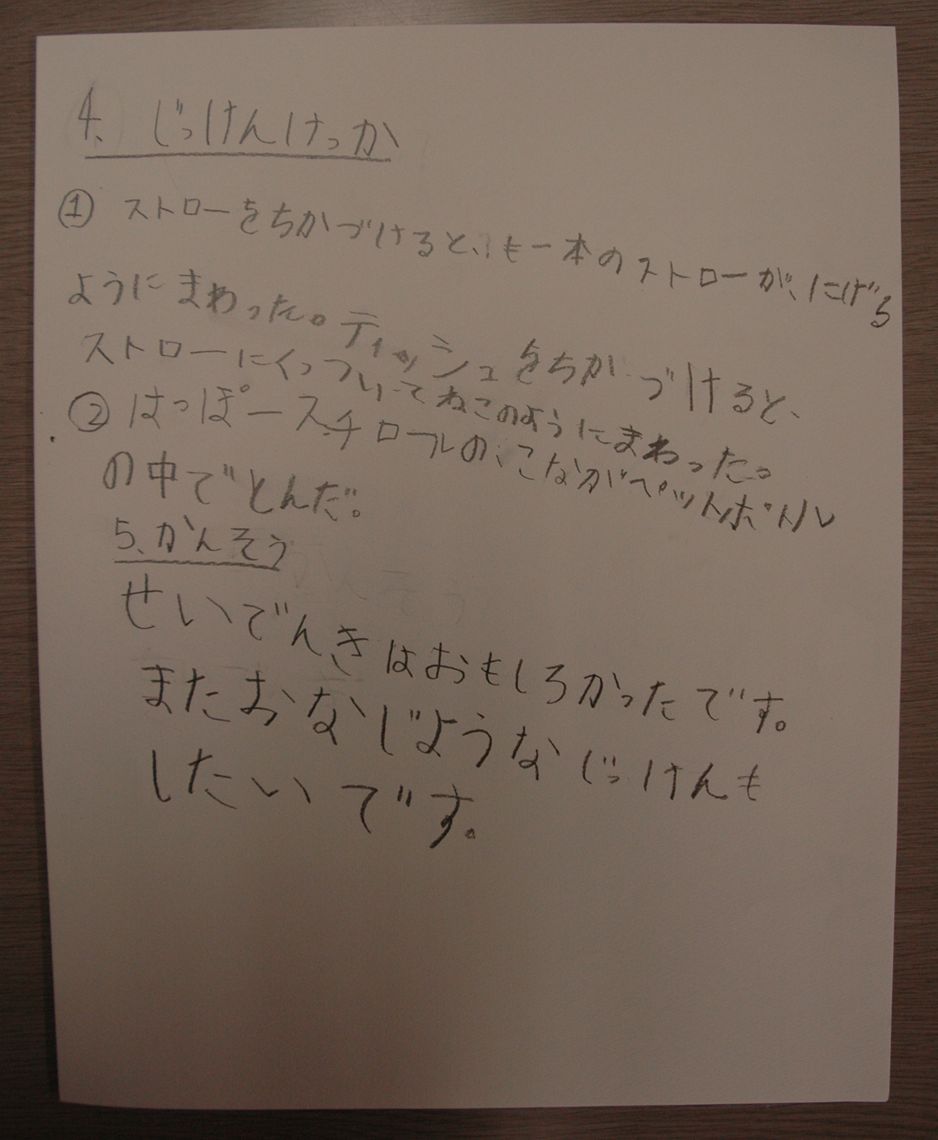 4. じっけんけっか
① ストローをちかづけると、も一本のストローが、にげる
ようにまわった。ティッシュをちかづけると、
ストローにくっついてねこのようにまわった。
② はっぽースチロールの、こながペットボトル
の中でとんだ。
5、かんそう
せいでんきはおもしろかったです。
またおなじようなじっけんも
したいです。